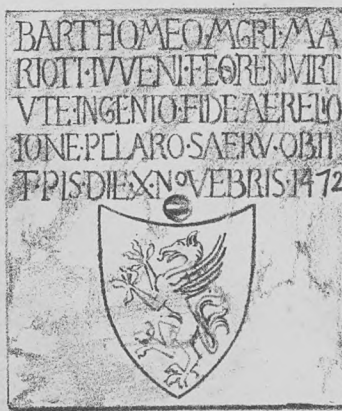 BARTHOMEO·MGRI·MA
RIOTI·IVVENI·FEOREN·VIRT
VTE·INGENIO·FIDE·AERELIO
IONE·PCLARO·SAERV·OBII
T·PIS·DIE·X·NOVEBRIS·1472